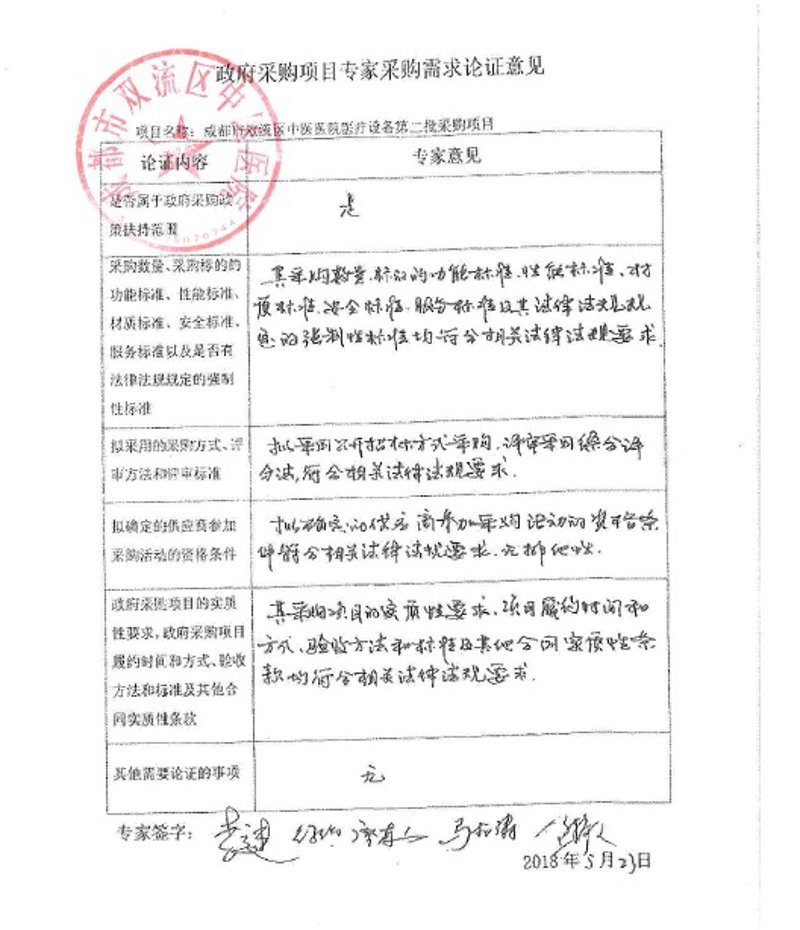 政府采购项目专家采购需求论证意见
项目名称：成都市双流区中医医院医疗设备第二批采购项目
论证内容
专家意见
是否属于政府采购政
策扶持范围
是
采购数量、采购标的的
功能标准、性能标准、
材质标准、安全标准、
服务标准以及是否有
法律法规规定的强制
性标准
其采购数量、标的的功能标准、性能标准、材
质标准、安全标准、服务标准及其法律法规规
定的强制性标准均符合相关法律法规要求。
拟采用的采购方式、评
审方法和评审标准
拟采用公开招标方式采购，评审采用综合评
分法，符合相关法律法规要求。
拟确定的供应商参加
采购活动的资格条件
拟确定的供应商参加采购活动的资格条
件符合相关法律法规要求，无排他性。
政府采购项目的实质
性要求，政府采购项目
履约的时间和方式、验收
方法和标准及其他合
同实质性条款
其采购项目的实质性要求、项目履约时间和
方式、验收方法和标准及其他合同实质性条
款均符合相关法律法规要求。
其他需要论证的事项
无
专家签字：
2018年5月23日
成都市双流区中医医院